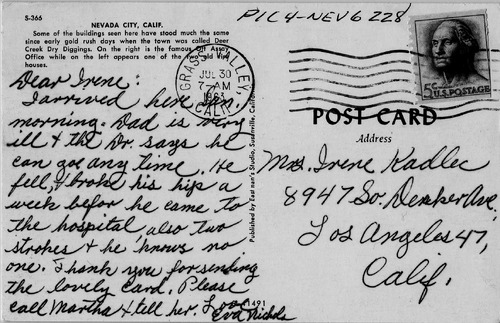 S-366
PIC 4-NEV6 228
NEVADA CITY, CALIF.
Some of the buildings seen here have stood much the same
since early gold rush days when the town was called Deer
Creek Dry Diggings. On the right is the famous Ott Assay
Office while on the left appears one of the two old
houses.
GRASS VALLEY
JUL 30
7-AM
CALIF.
5¢
U.S. POSTAGE
Dear Irene:
I arrived here
morning. Dad is very
ill & the Dr. says he
can go any time. He
fell, & broke his hip a
week befor he came to
the hospital, also two
strokes & he knows no
one. Thank you for sending
the lovely card. Please
call Martha & tell her. Love
Eva Nichols
1491
Published by Eastman's Studio, Susanville, Calif.
POST CARD
Address
Mrs. Irene Kadlec
8947 So. Denker Ave.
Los Angeles 47,
Calif.